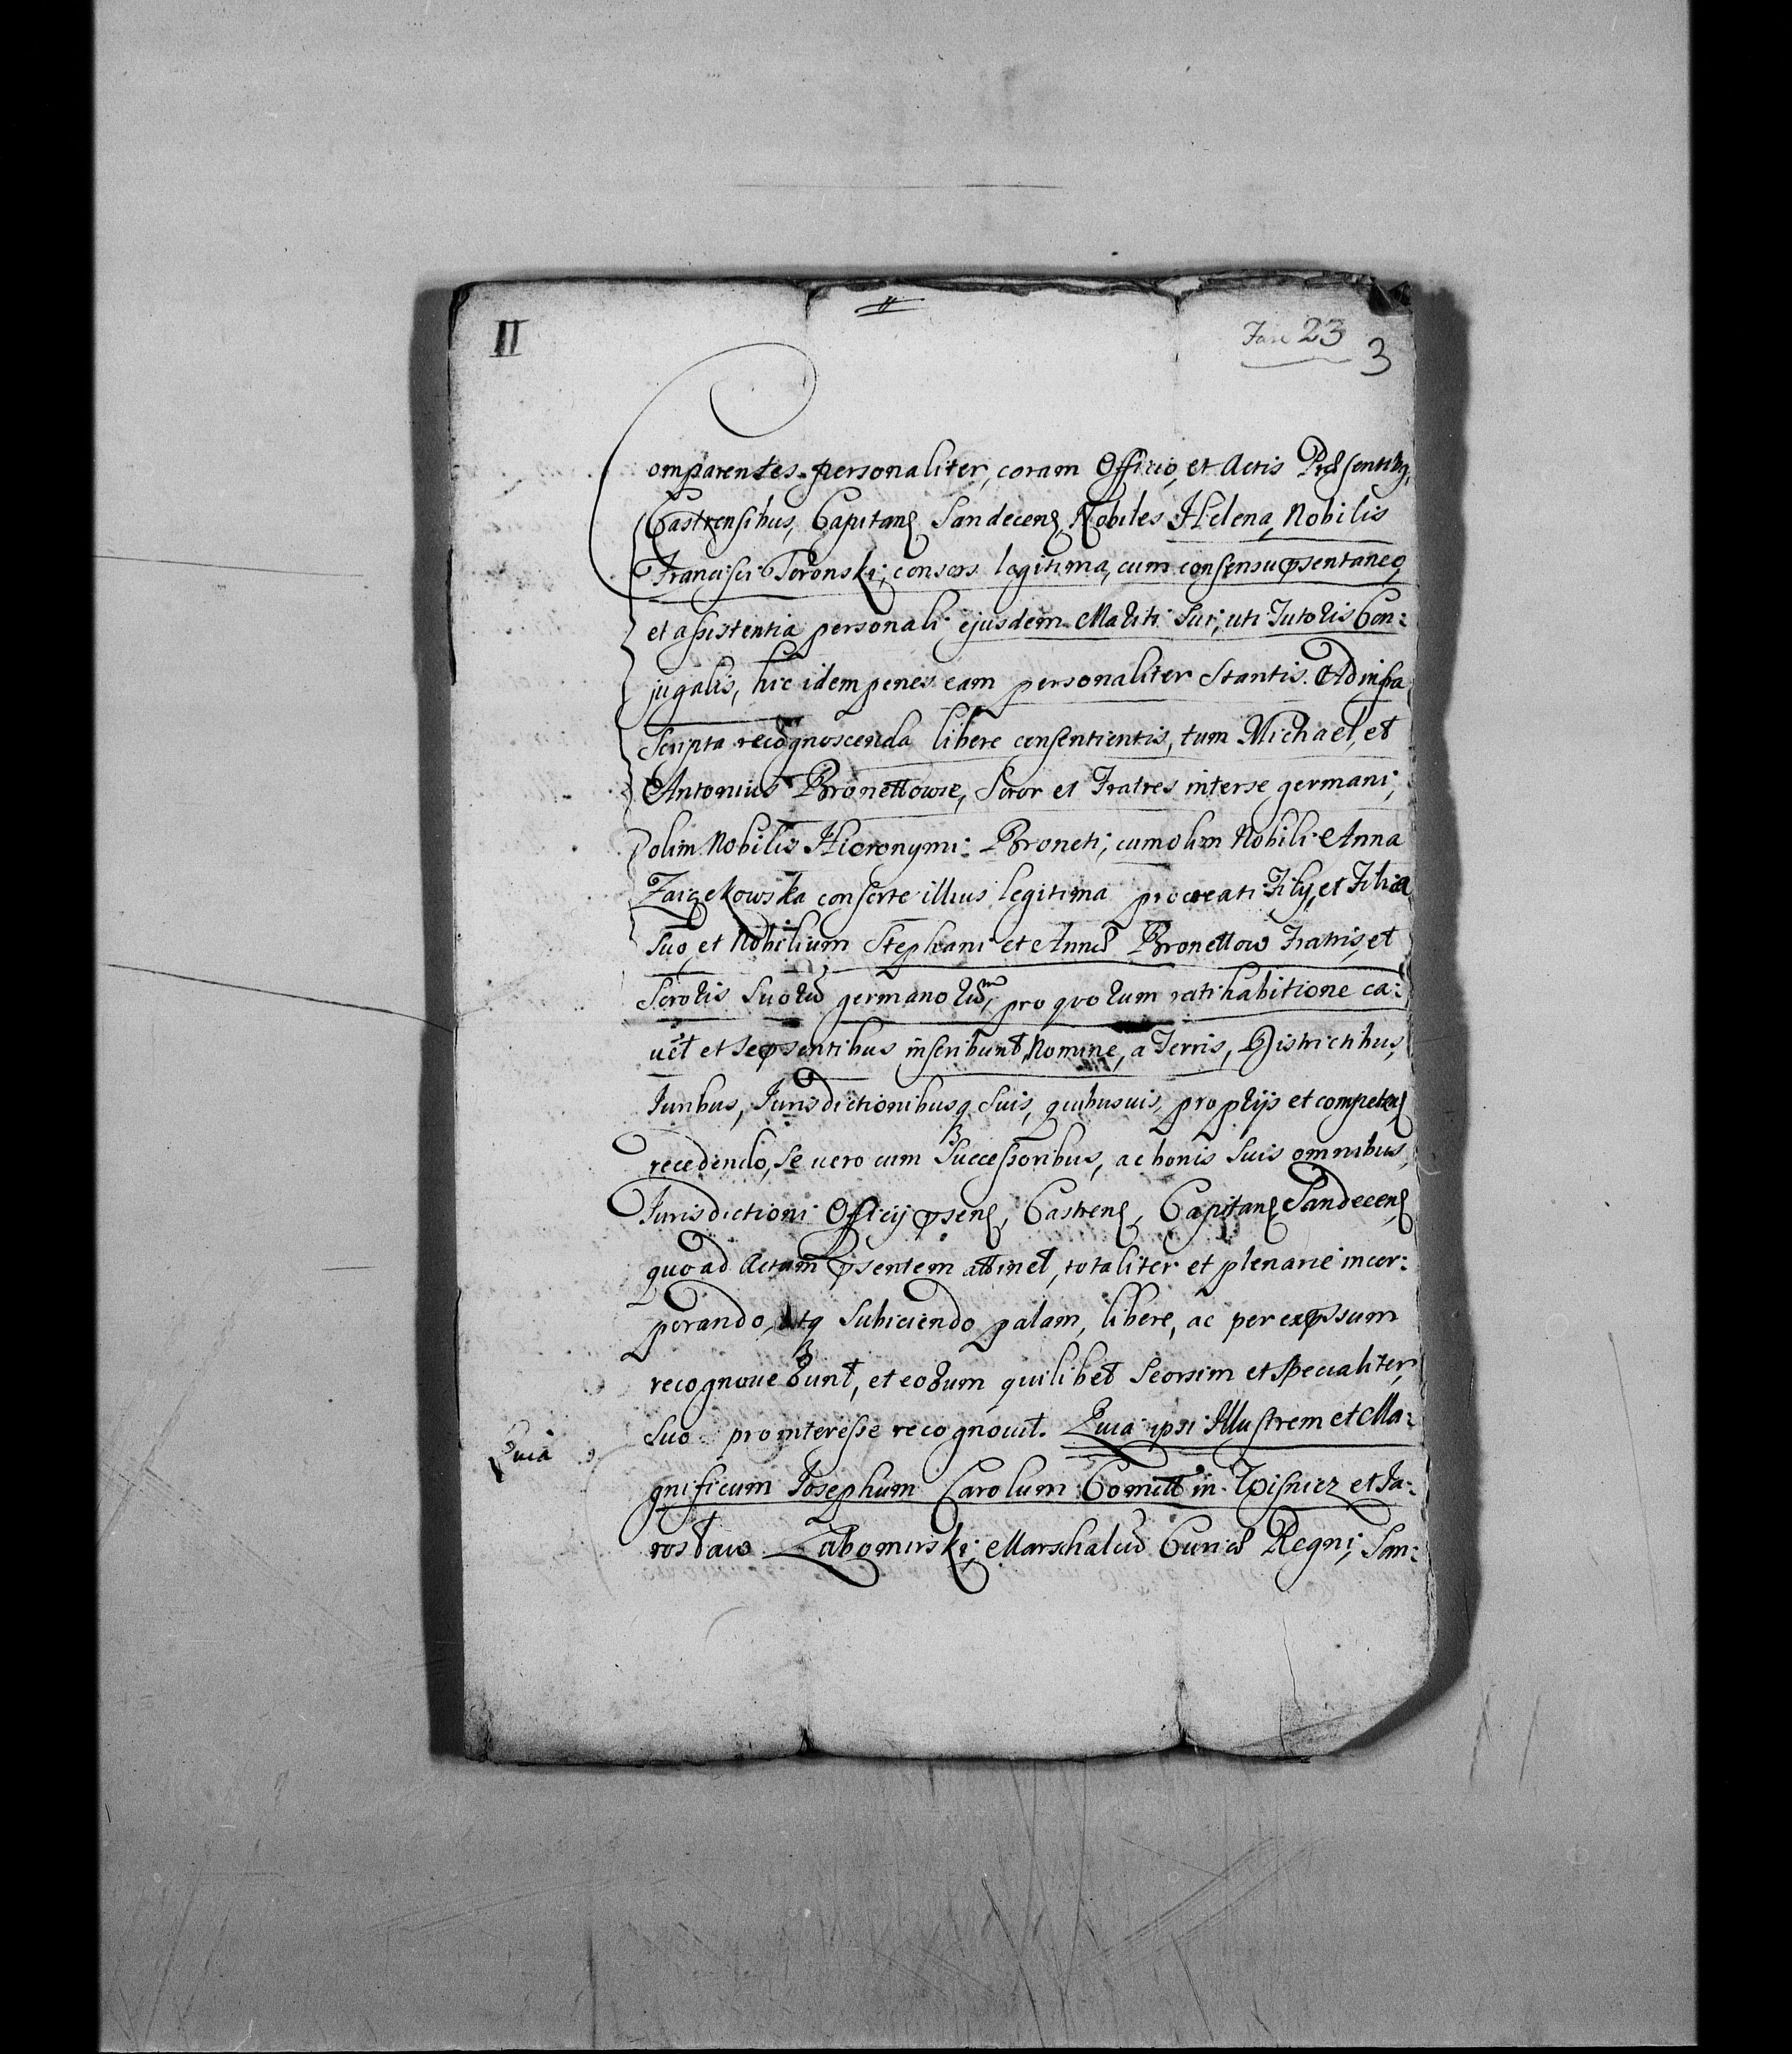 II
Fasc 23
3
Comparentes personaliter, coram Officio, et Actis Præsentibq,
Castrensibus, Capitan Sandecen Nobiles Helena, Nobilis
Francisci Toronski, consors legitima, cum consensu psentaneo,
et assistentia personali ejusdem Mariti Sui, uti Tutoris Con:
jugalis, hic idem penes eam personaliter Stantis. Ad infra
Scripta recognoscenda libere consentientis, tum Michael, et
Antonius Bronettowie, Soror et Fratres interse germani,
olim Nobilis Hieronymi Broneti, cum olim Nobili Anna
Zaiączkowska conserte illius legitima procreati Filij, et Filia
Suo, et Nobilium Stephani et Annæ Bronettow Fratris, et
Sororis Suorū germanorūm, pro quorum ratihabitione ca:
uēt et Se psentibus inscribunt, Nomine, a Terris, Districtibus,
Juribus, Jurisdictionibusq Suis, quibusuis, proprijs et competen
recedendo, Se uero cum Successoribus, ac bonis Suis omnibus,
Jurisdictioni Officij psen, Castren, Capitan Sandecen
quo ad Actum psentem attinet, totaliter et plenarie incor:
porando, atq Subiciendo palam, libere, ac per expssum
recognouerunt, et eorum quilibet Seorsim et specialiter,
Suo pro interesse recognouit. Quia ipsi Illustrem et Ma:
Quia
gnificum Josephum Carolum Comitt in Wisnicz et Ja:
rosław Lubomirski, Marschalcū Curiæ Regni, San: